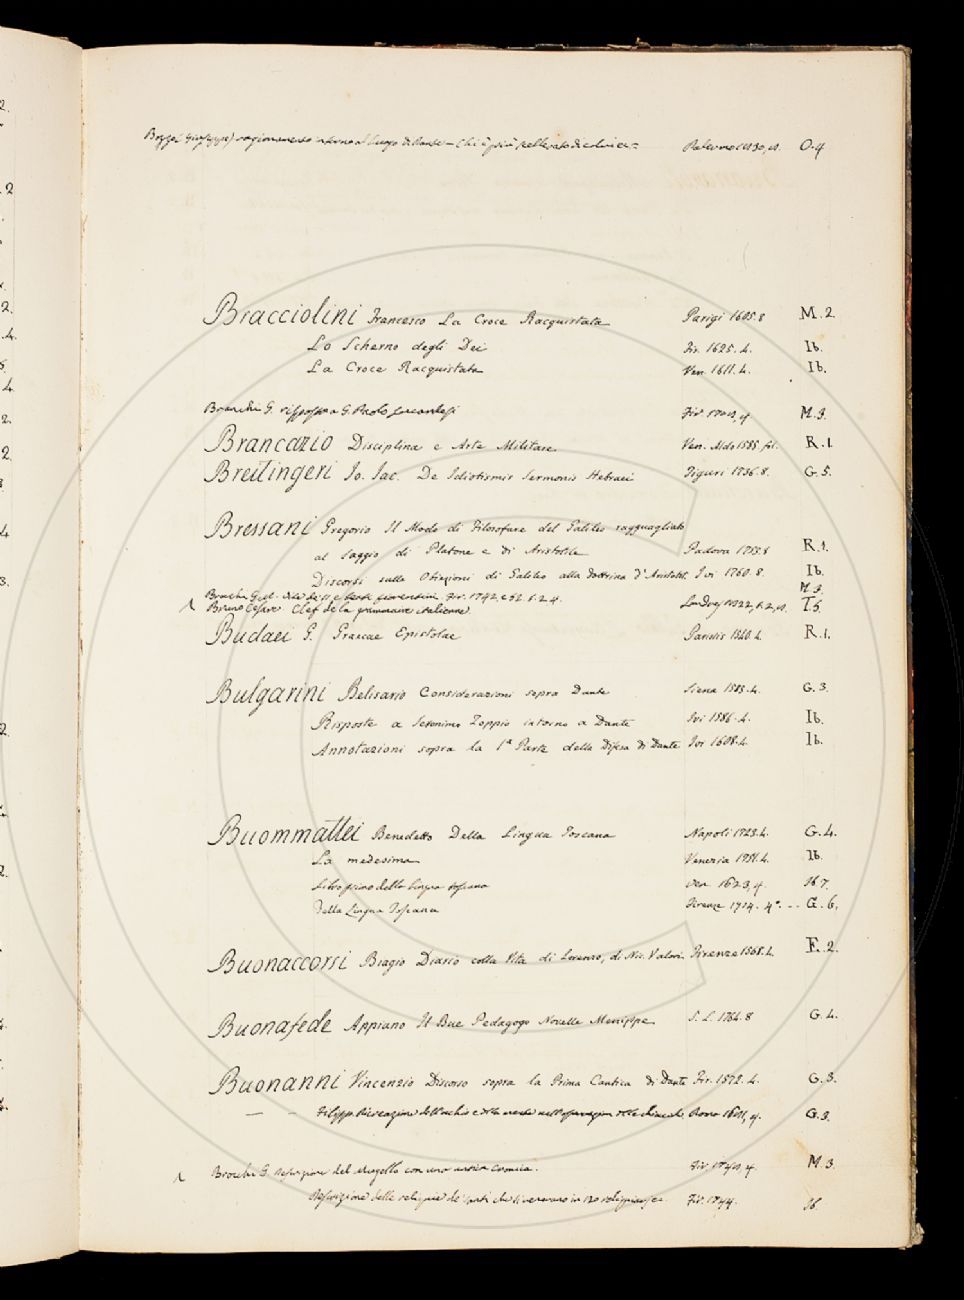 Bozzi (Giuseppe) ragionamento intorno al luogo di Dante = Chi è più scellerato di colui ec = Palermo 1830, 8. O. 4
Bracciolini Francesco La Croce Racquistata Parigi 1605. 8 M. 2
Lo Scherno degli Dei Fir. 1625. 4. Ib.
La Croce Racquistata Ven. 1611. 4. Ib.
Branchi G. risposta a G. Paolo Fir. 4 M. 3.
Brancazio Disciplina e Arte Militare Ven. Aldo 1585. fol. R. 1.
Breitingeri Jo. Jac. De Idiotismis Sermonis Hebraei Tiguri 1736. 8. G. 5.
Bressani Gregorio Il Modo di Filosofare del Galileo ragguagliato
al saggio di Platone e di Aristotile Padova 1753. 8 R. 1.
Discorsi sulle Obiezioni di Galileo alla dottrina d'Aristotele Ivi 1760. 8. Ib.
Brocchi G. vite de SS. e beati fiorentini Fir. 1742, e 52. t. 2. 4. M. 3
Bruno Cesare Clef de la grammaire italienne Londres 1822, t. 2, 8. T. 5.
Budaei G. Graecae Epistolae Parisiis 1540. 4. R. 1.
Bulgarini Belisario Considerazioni sopra Dante Siena 1583. 4. G. 3.
Risposte a Ieronimo Zoppio intorno a Dante Ivi 1586. 4. Ib.
Annotazioni sopra la 1ª Parte della Difesa di Dante Ivi 1608. 4. Ib.
Buommattei Benedetto Della Lingua Toscana Napoli 1723. 4. G. 4.
La medesima Venezia 1751. 4. Ib.
Libro primo della lingua toscana Ven. 1623, 4. Ib 7.
Della Lingua Toscana Firenze 1714. 4º. - - G. 6.
Buonaccorsi Biagio Diario colla Vita di Lorenzo, di Nic. Valori. Firenze 1568. 4. F. 2.
Buonafede Appiano Il Bue Pedagogo Novelle Menippe S. L. 1764. 8 G. 4.
Buonanni Vincenzio Discorso sopra la Prima Cantica di Dante Fir. 1572. 4. G. 3.
— — Filippo Ricreazione dell'occhio e della mente nell'osservazion delle chiocciole Roma 1681, 4. G. 3
Brocchi G. Descrizione del Mugello con una antica Cronica. Fir. 1748, 4. M. 3
Descrizione delle reliquie de' santi che si venerano in Fir. 1744. Ib.